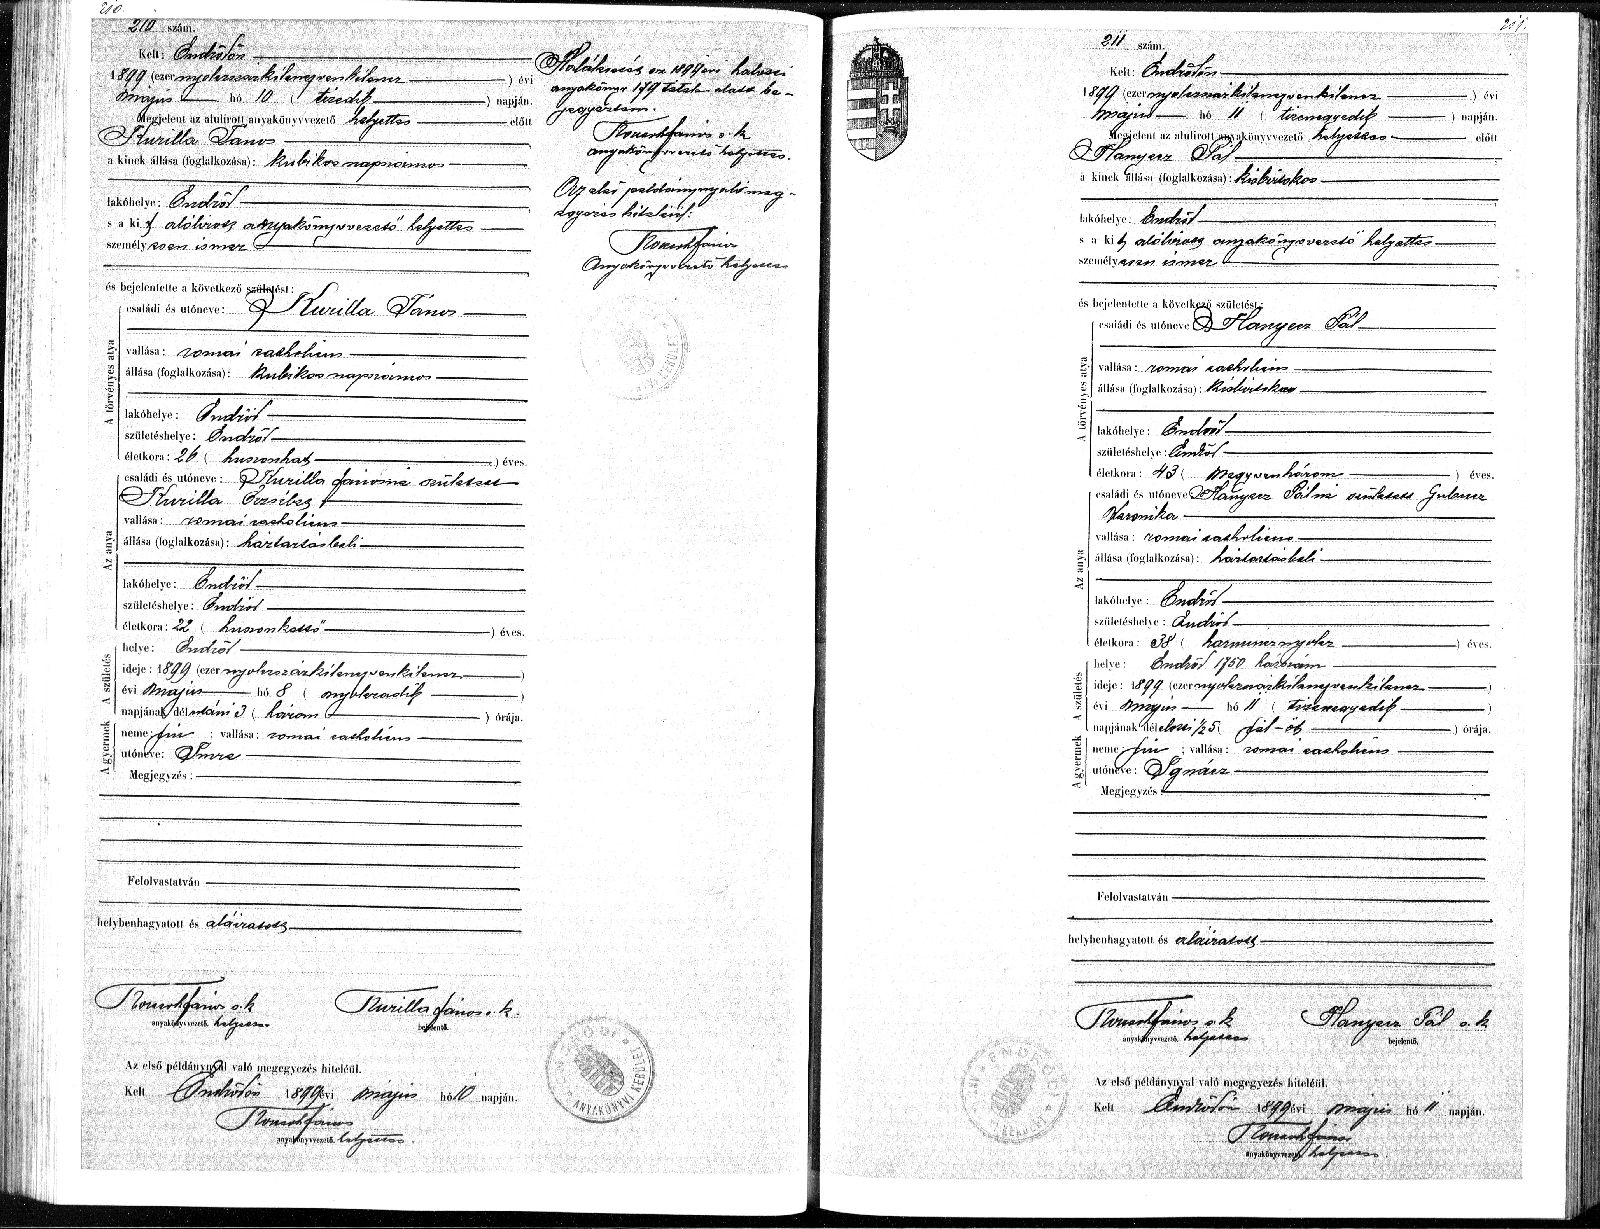 210
210 szám.
Kelt: Endrődön
1899 (ezer nyolczszázkilenczvenkilencz) évi
május hó 10 (tizedik) napján.
Megjelent az alulirott anyakönyvvezető helyettes előtt
Kurilla János
a kinek állása (foglalkozása): kubikos napszámos
lakóhelye: Endrőd
s a kit alólirott anyakönyvvezető helyettes
személyesen ismer
és bejelentette a következő születést:
A törvényes atya
családi és utóneve: Kurilla János
vallása: romai catholicus
állása (foglalkozása): kubikos napszámos
lakóhelye: Endrőd
születéshelye: Endrőd
életkora: 26 (huszonhat) éves.
Az anya
családi és utóneve: Kurilla Jánosné született
Kurilla Erzsébet
vallása: romai catholicus
állása (foglalkozása): háztartásbeli
lakóhelye: Endrőd
születéshelye: Endrőd
életkora: 22 (huszonkettő) éves.
A születés
helye: Endrőd
ideje: 1899 (ezer nyolczszázkilenczvenkilencz)
évi május hó 8 (nyolczadik)
napjának délutáni 3 (három) órája.
A gyermek
neme: fiu; vallása: romai catholicus
utóneve: Imre
Megjegyzés:
Felolvastatván
helybenhagyatott és aláiratott
János s. k.
anyakönyvvezető. helyettes
Kurilla János s. k.
bejelentő.
Az első példánynyal való megegyezés hiteléül.
Kelt Endrődön 1899 évi május hó 10 napján.
János
anyakönyvvezető. helyettes.
Halálozás az 1899 évi halotti
anyakönyv 179 tétele alatt be-
jegyeztem.
János s. k.
anyakönyvvezető helyettes.
Az első példánynyali meg-
egyezés hiteléül:
János
Anyakönyvvezető helyettes
ENDRŐDI
ANYAKÖNYVI KERÜLET
211.
211 szám.
Kelt: Endrődön
1899 (ezer nyolczszázkilenczvenkilencz) évi
május hó 11 (tizenegyedik) napján.
Megjelent az alulirott anyakönyvvezető helyettes előtt
Hanyecz Pál
a kinek állása (foglalkozása): kisbirtokos
lakóhelye: Endrőd
s a kit alólirott anyakönyvvezető helyettes
személyesen ismer
és bejelentette a következő születést:
A törvényes atya
családi és utóneve Hanyecz Pál
vallása: romai catholicus
állása (foglalkozása): kisbirtokos
lakóhelye: Endrőd
születéshelye: Endrőd
életkora: 43 (negyvenhárom) éves.
Az anya
családi és utóneve Hanyecz Pálné született
Veronika
vallása: romai catholicus
állása (foglalkozása): háztartásbeli
lakóhelye: Endrőd
születéshelye: Endrőd
életkora: 38 (harmincznyolcz) éves.
A születés
helye: Endrőd 1750 házszám
ideje: 1899 (ezer nyolczszázkilenczvenkilencz)
évi május hó 11 (tizenegyedik)
napjának délelőtti 1/2 5 (fél-öt) órája.
A gyermek
neme: fiu; vallása: romai catholicus
utóneve: Ignácz
Megjegyzés
Felolvastatván
helybenhagyatott és aláiratott
János s. k.
anyakönyvvezető. helyettes
Hanyecz Pál s. k.
bejelentő.
Az első példánynyal való megegyezés hiteléül.
Kelt Endrődön 1899 évi május hó 11 napján.
János
anyakönyvvezető. helyettes.